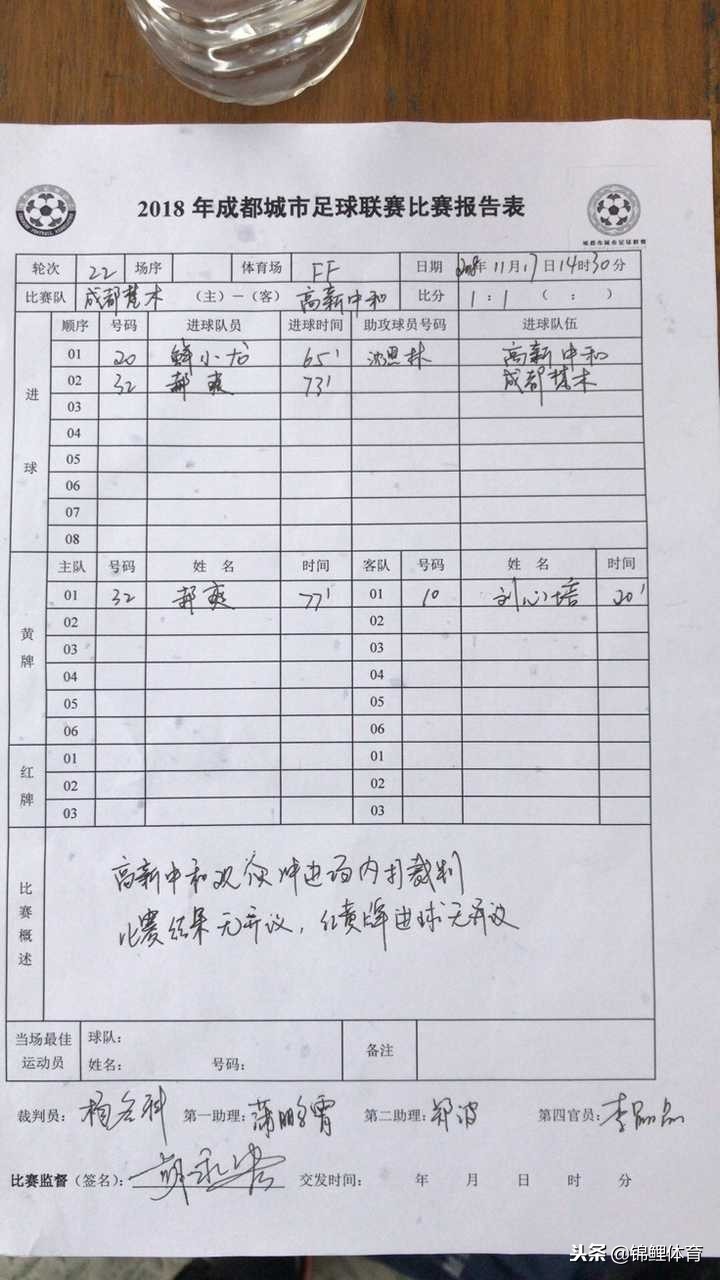 2018 年成都城市足球联赛比赛报告表
成都市城市足球联赛
轮次 22 场序 体育场 FF 日期 2018年 11月17日14时30分
比赛队 成都楚木 （主）－（客） 高新中和 比分 1：1 （ ： ）
进球
顺序 号码 进球队员 进球时间 助攻球员号码 进球队伍
01 20 鲜小龙 65' 沈思林 高新中和
02 32 郝爽 73' 成都楚木
03
04
05
06
07
08
黄牌
主队 号码 姓 名 时间 客队 号码 姓 名 时间
01 32 郝爽 77' 01 10 刘心培 20'
02 02
03 03
04 04
05 05
06 06
红牌
01 01
02 02
03 03
比赛概述
高新中和观众冲进场内打裁判
比赛结果无异议，红黄牌进球无异议
当场最佳运动员 球队： 备注
姓名： 号码：
裁判员： 第一助理：蒲鹏霄 第二助理：郑波 第四官员：李
比赛监督（签名）： 交发时间： 年 月 日 时 分
头条 @锦鲤体育